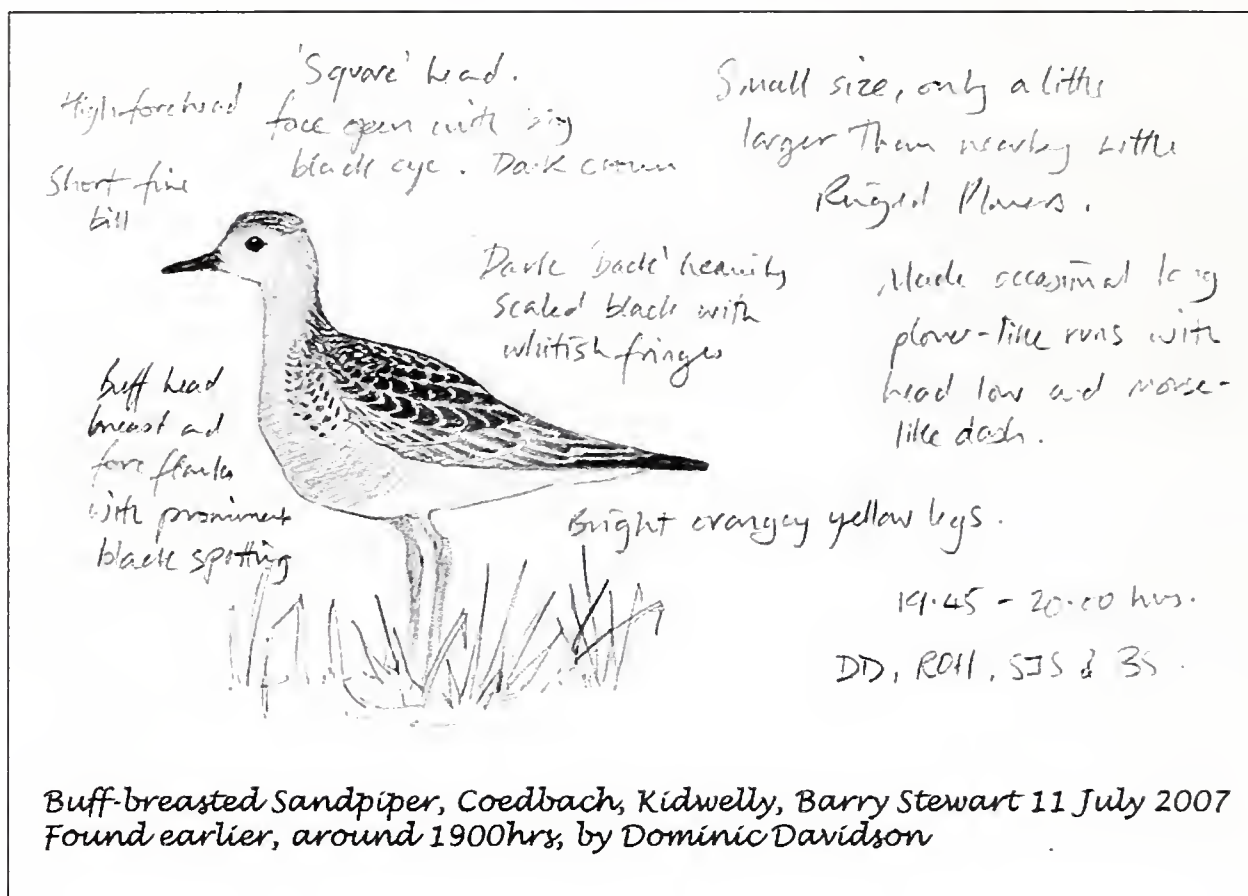 High forehead
Short fine
bill
'Square' head.
face open with big
black eye. Dark crown
Small size, only a little
larger than nearby Little
Ringed Plovers.
Dark 'back' heavily
scaled black with
whitish fringes
Made occasional long
plover-like runs with
head low and
like dash.
buff head
breast and
fore flanks
with prominent
black spotting
Bright orangey yellow legs.
19.45 - 20.00 hrs.
DD, ROH, SJS & BS.
Buff-breasted Sandpiper, Coedbach, Kidwelly, Barry Stewart 11 July 2007
Found earlier, around 1900hrs, by Dominic Davidson